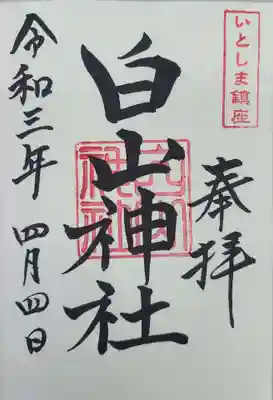 いとしま鎮座
奉拝
白山神社
令和三年 四月四日